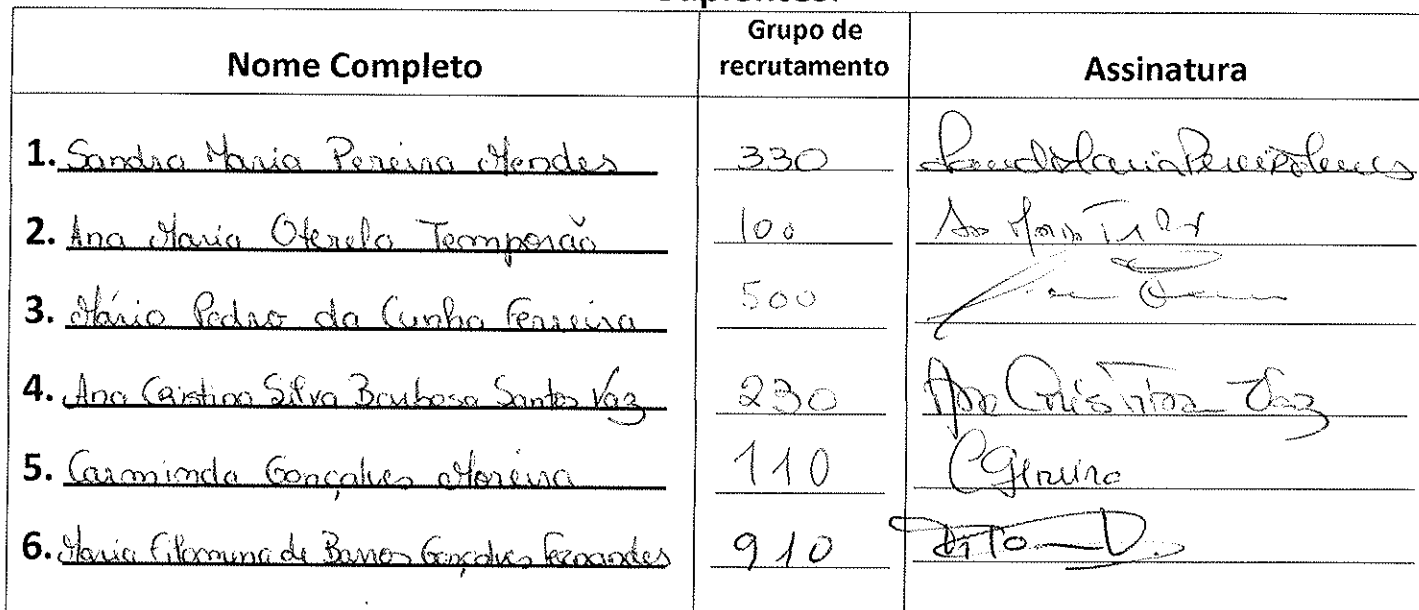 Nome Completo Grupo de recrutamento Assinatura
1. Sandra Maria Pereira Mendes 330
2. Ana Maria Oterelo Temporão 100
3. Mário Pedro da Cunha Ferreira 500
4. Ana Cristina Silva Barbosa Santos Vaz 230 Ana Cristina Vaz
5. Carminda Gonçalves Moreira 110
6. Maria Filomena de Barros Gonçalves Fernandes 910